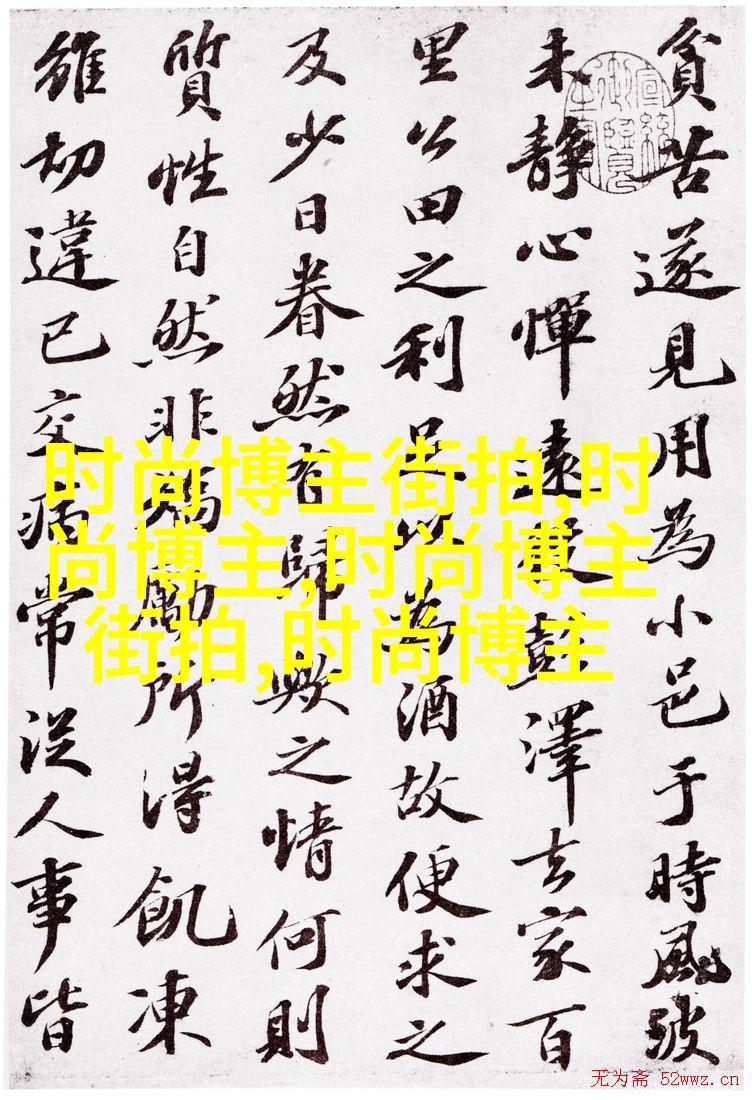 貧苦遂見用為小邑于時風波
未靜心憚遠役彭澤去家百
里公田之利足以為酒故便求之
及少日眷然有歸歟之情何則
質性自然非矯勵所得飢凍
雖切違己交病常從人事皆
时尚博主街拍,时
尚博主,时尚博主
街拍,时尚博主
无为斋 52wwz.cn